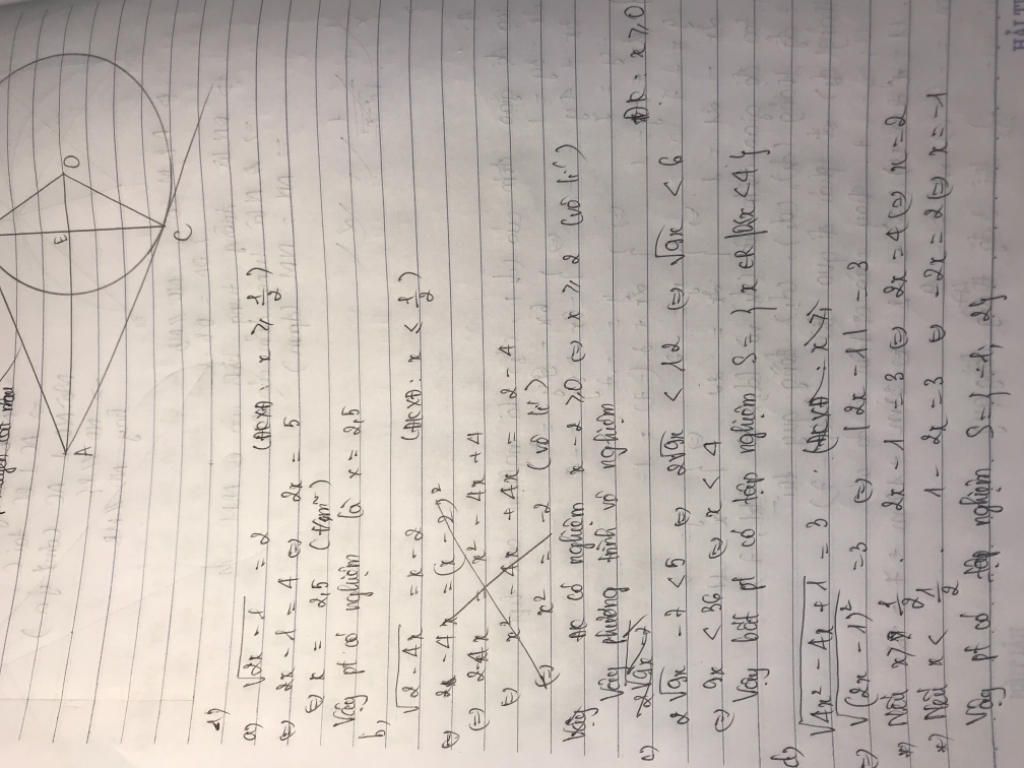 A
E
O
C
a) √(2x - 1) = 2 (ĐKXĐ: x ≥ 1/2)
⇔ 2x - 1 = 4 ⇔ 2x = 5
⇔ x = 2,5 (t/m)
Vậy pt có nghiệm là x = 2,5
b) √(2 - 4x) = x - 2 (ĐKXĐ: x ≤ 1/2)
⇔ 2 - 4x = (x - 2)²
⇔ 2 - 4x = x² - 4x + 4
⇔ x² - 4x + 4x = 2 - 4
⇔ x² = -2 (vô lí)
ĐK có nghiệm x - 2 ≥ 0 ⇔ x ≥ 2 (vô lí)
Vậy phương trình vô nghiệm
c) 2√9x - 7 < 5 ⇔ 2√9x < 12 ⇔ √9x < 6 ĐK: x ≥ 0
⇔ 9x < 36 ⇔ x < 4
Vậy bất pt có tập nghiệm S = { x ∈ R | 0 ≤ x < 4 }
d) √(4x² - 4x + 1) = 3
⇔ √(2x - 1)² = 3 ⇔ |2x - 1| = 3
*) Nếu x ≥ 1/2 2x - 1 = 3 ⇔ 2x = 4 ⇔ x = 2
*) Nếu x < 1/2 1 - 2x = 3 ⇔ -2x = 2 ⇔ x = -1
Vậy pt có tập nghiệm S = { -1, 2}
HẢI T